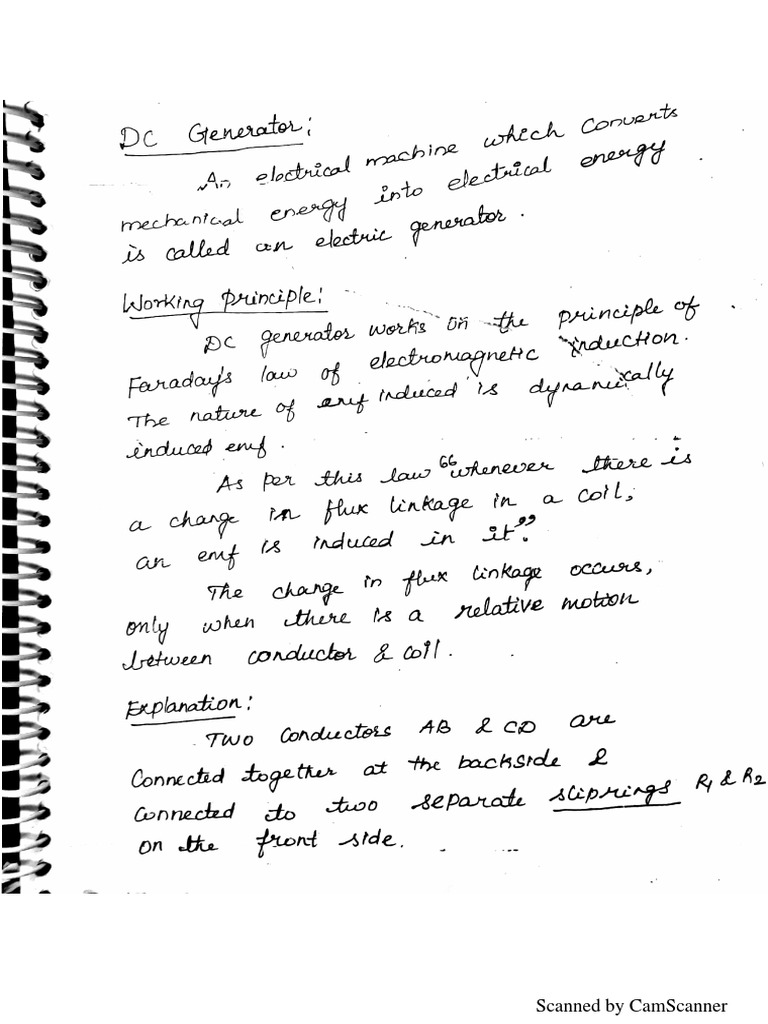 DC Generator:
An electrical machine which converts
mechanical energy into electrical energy
is called an electric generator.
Working principle:
DC generator works on the principle of
Faraday's law of electromagnetic induction.
The nature of emf induced is dynamically
induced emf.
As per this law "whenever there is
a change in flux linkage in a coil,
an emf is induced in it".
The change in flux linkage occurs,
only when there is a relative motion
between conductor & coil.
Explanation:
Two conductors AB & CD are
connected together at the backside &
connected to two separate sliprings R1 & R2
on the front side.
Scanned by CamScanner